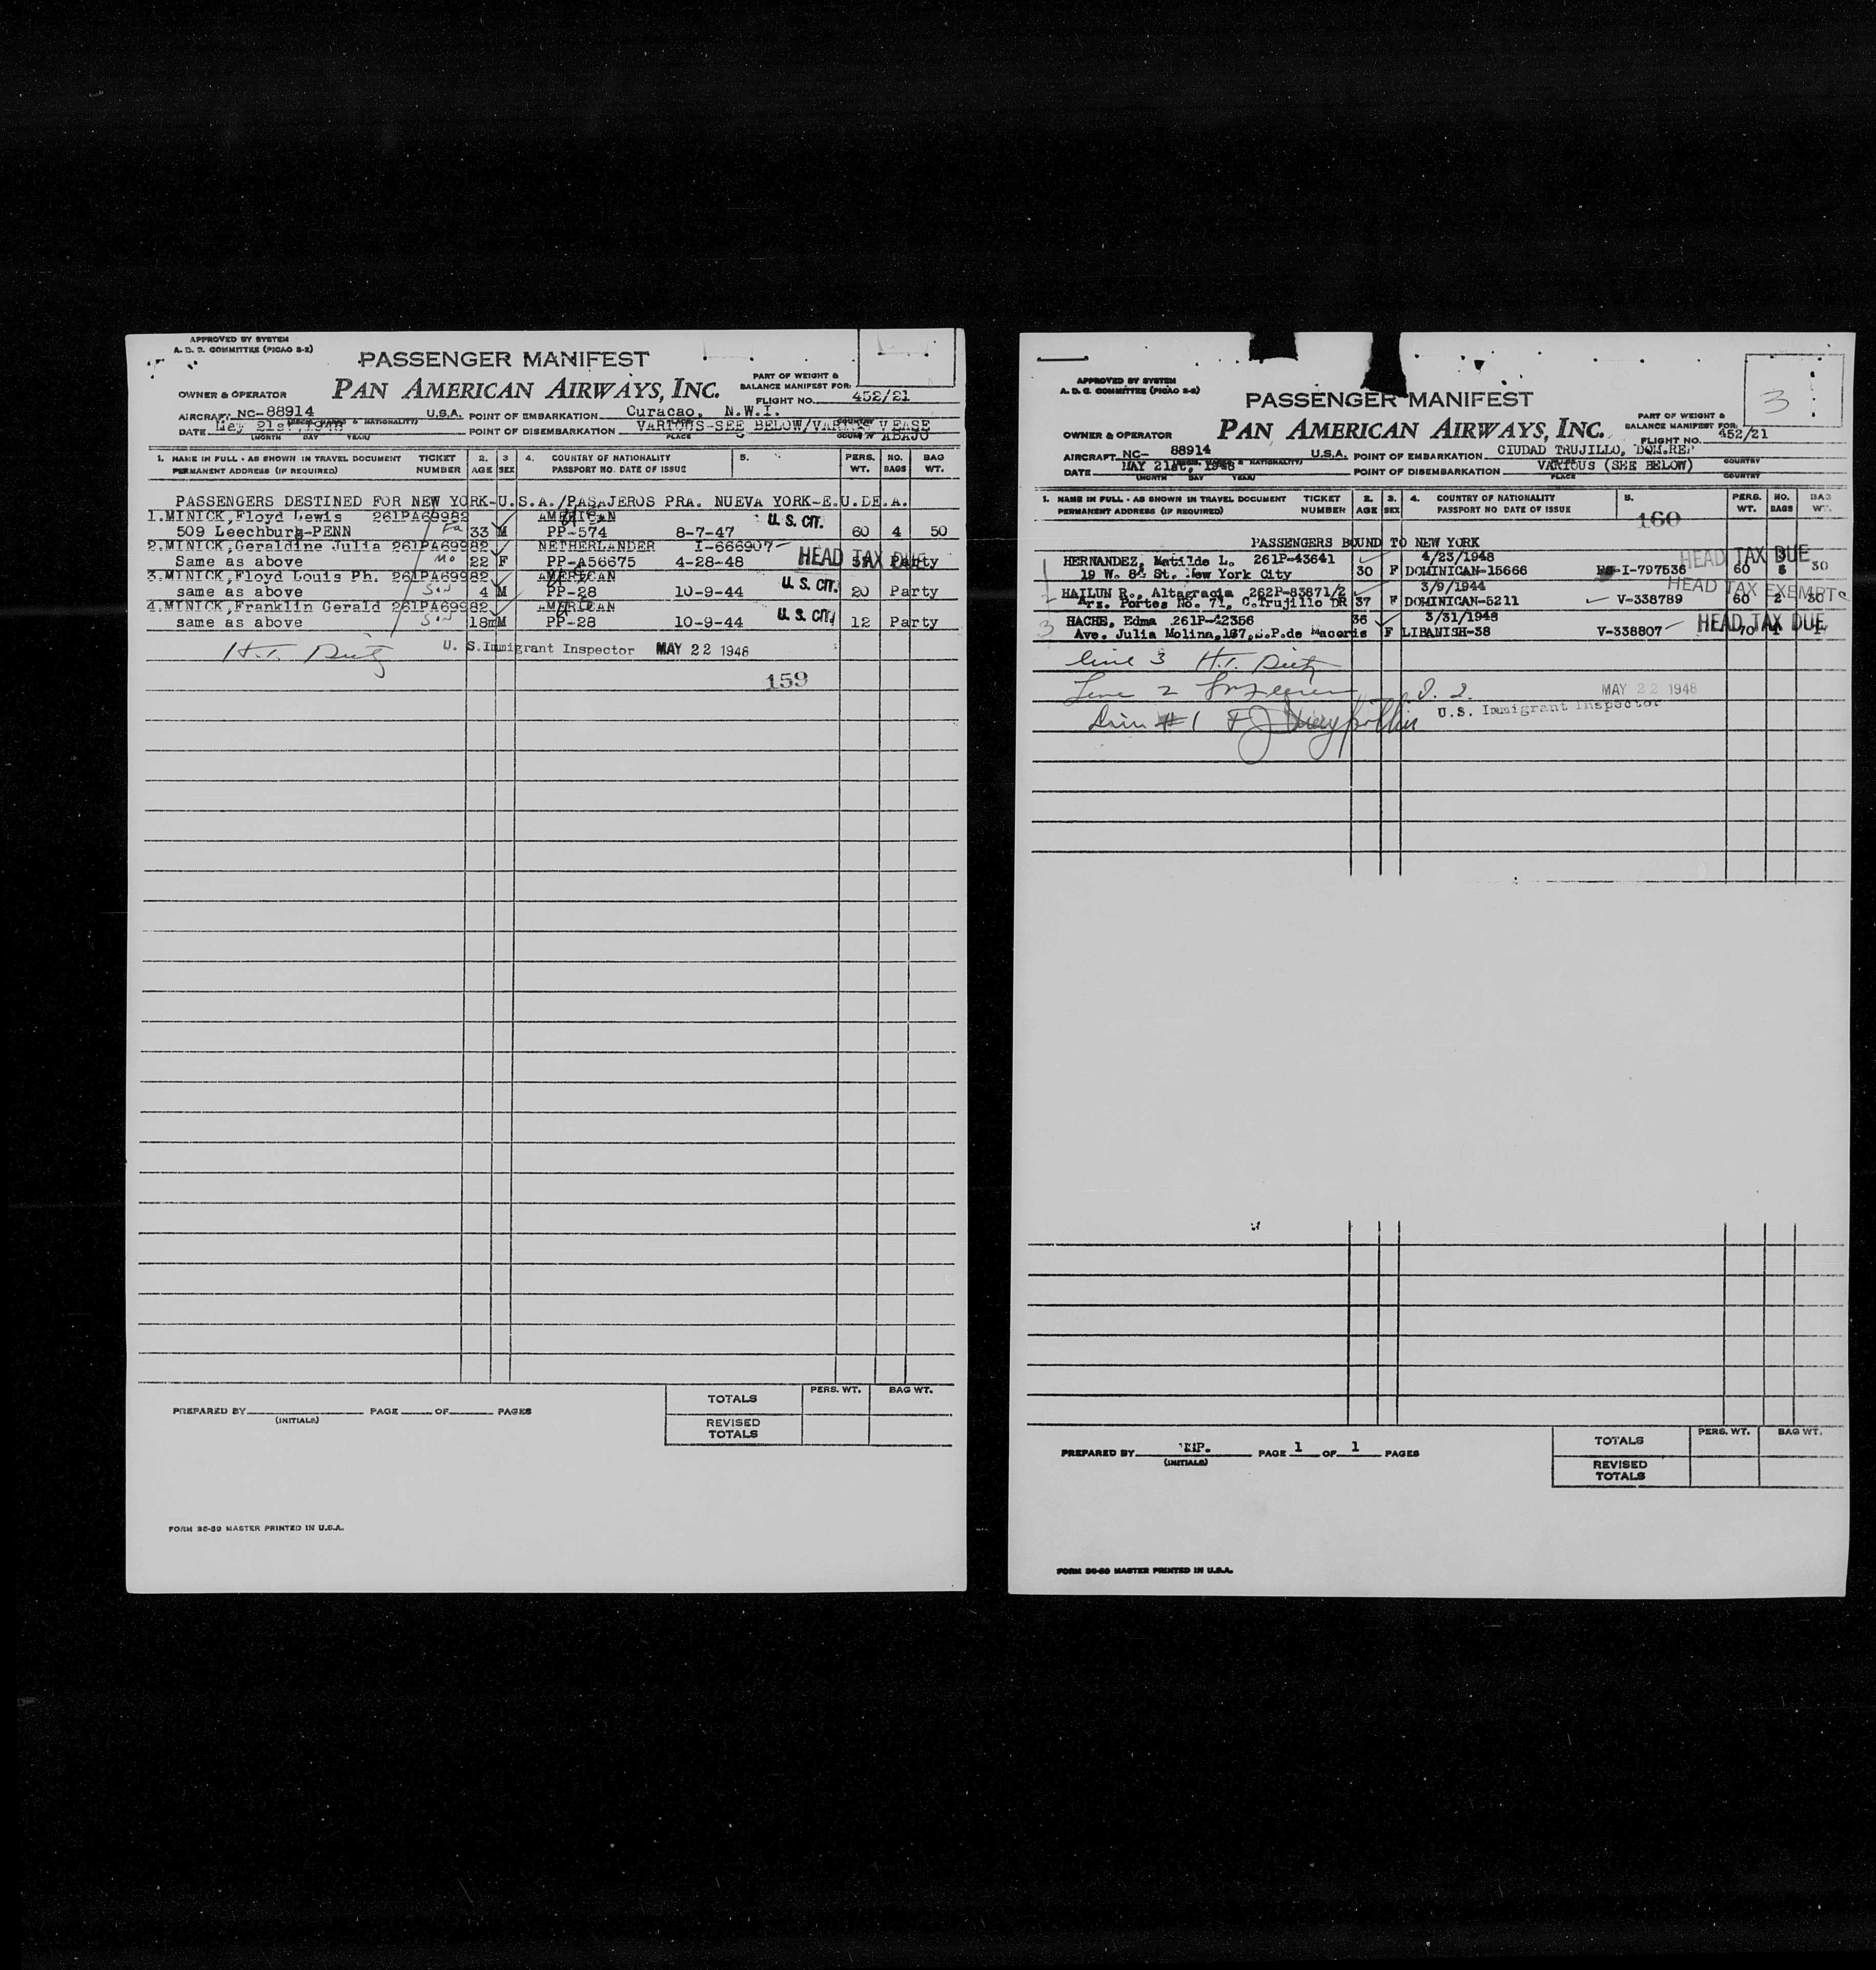 APPROVED BY SYSTEM
A. D. C. COMMITTEE (PICAO 2-2)
PASSENGER MANIFEST
PAN AMERICAN AIRWAYS, INC.
PART OF WEIGHT &
BALANCE MANIFEST FOR:
OWNER & OPERATOR
FLIGHT NO. 452/21
AIRCRAFT NC-88914 U.S.A. POINT OF EMBARKATION Curacao, N.W.I.
DATE May 21st, 1948 POINT OF DISEMBARKATION VARIOUS-SEE BELOW/VARIOS VEASE ABAJO
(MONTH DAY YEAR) PLACE COUNTRY
1. NAME IN FULL - AS SHOWN IN TRAVEL DOCUMENT TICKET 2. 3 4. COUNTRY OF NATIONALITY 5. PERS. NO. BAG
PERMANENT ADDRESS (IF REQUIRED) NUMBER AGE SEX PASSPORT NO. DATE OF ISSUE WT. BAGS WT.
PASSENGERS DESTINED FOR NEW YORK-U.S.A./PASAJEROS PRA. NUEVA YORK-E.U.DE.A.
1.MINICK,Floyd Lewis 261PA69982 AMERICAN U. S. CIT.
509 Leechburg-PENN Fa 33 M PP-574 8-7-47 60 4 50
2.MINICK,Geraldine Julia 261PA69982 NETHERLANDER I-666907 HEAD TAX DUE
Same as above Mo 22 F PP-A56675 4-28-48 Party
3.MINICK,Floyd Louis Ph. 261PA69982 AMERICAN U. S. CIT.
same as above Son 4 M PP-28 10-9-44 20 Party
4.MINICK,Franklin Gerald 261PA69982 AMERICAN U. S. CIT.
same as above Son 18m M PP-28 10-9-44 12 Party
H.T. U. S.Immigrant Inspector MAY 22 1948
159
TOTALS PERS. WT. BAG WT.
PREPARED BY PAGE OF PAGES
(INITIALS)
REVISED
TOTALS
FORM 36-59 MASTER PRINTED IN U.S.A.
3
APPROVED BY SYSTEM
A. D. C. COMMITTEE (PICAO 2-2)
PASSENGER MANIFEST
PAN AMERICAN AIRWAYS, INC.
PART OF WEIGHT &
BALANCE MANIFEST FOR:
OWNER & OPERATOR
FLIGHT NO. 452/21
AIRCRAFT NC- 88914 U.S.A. POINT OF EMBARKATION CIUDAD TRUJILLO, DOM.REP
DATE MAY 21st, 1948 POINT OF DISEMBARKATION VARIOUS (SEE BELOW)
(MONTH DAY YEAR) PLACE COUNTRY
1. NAME IN FULL - AS SHOWN IN TRAVEL DOCUMENT TICKET 2. 3. 4. COUNTRY OF NATIONALITY 5. PERS. NO. BAG
PERMANENT ADDRESS (IF REQUIRED) NUMBER AGE SEX PASSPORT NO DATE OF ISSUE WT. BAGS WT.
160
PASSENGERS BOUND TO NEW YORK
1 HERNANDEZ, Matilde L. 261P-43641 4/23/1948 HEAD TAX DUE
19 W. 84 St. New York City 30 F DOMINICAN-15666 I-797536 60 30
2 HAILUN R., Altagracia 262P-83871/2 3/9/1944 HEAD TAX EXEMPT
Arz. Portes No. 71, C.Trujillo DR 37 F DOMINICAN-5211 V-338789 60 2 30
3 HACHE, Edma 261P-42356 36 3/31/1948 HEAD TAX DUE
Ave. Julia Molina,187,S.P.de Macoris F LIBANISH-38 V-338807 70
line 3 H.T.
Line 2 MAY 22 1948
Line #1 U.S. Immigrant Inspector
TOTALS PERS. WT. BAG WT.
PREPARED BY PAGE 1 OF 1 PAGES
(INITIALS)
REVISED
TOTALS
FORM 36-59 MASTER PRINTED IN U.S.A.